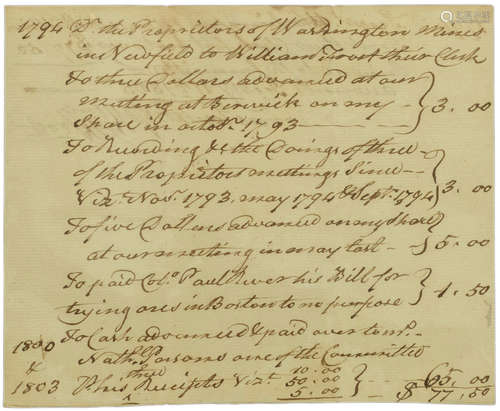 1794 Dr. the Proprietors of Washington Mines
in Newfield to William Frost their Clerk
To three Dollars advanced at our
meeting at Berwick on my
Share in octobr. 1793 3.00
To Recording &c the Doings of three
of the Proprietors meetings Since
Vizt. Novr. 1793. may 1794 & Septr. 1794 3.00
To five Dollars advanced on my Share
at our meeting in may last 5.00
To paid Colo. Paul Rever his Bill for
trying ores in Boston to no purpose 1.50
1800 To Cash advanced & paid over to Mr.
& Nathll Parsons one of the Committee
1803 Pr his three Receipts Vizt. 10.00 50.00 5.00 65.00
$ 77.50